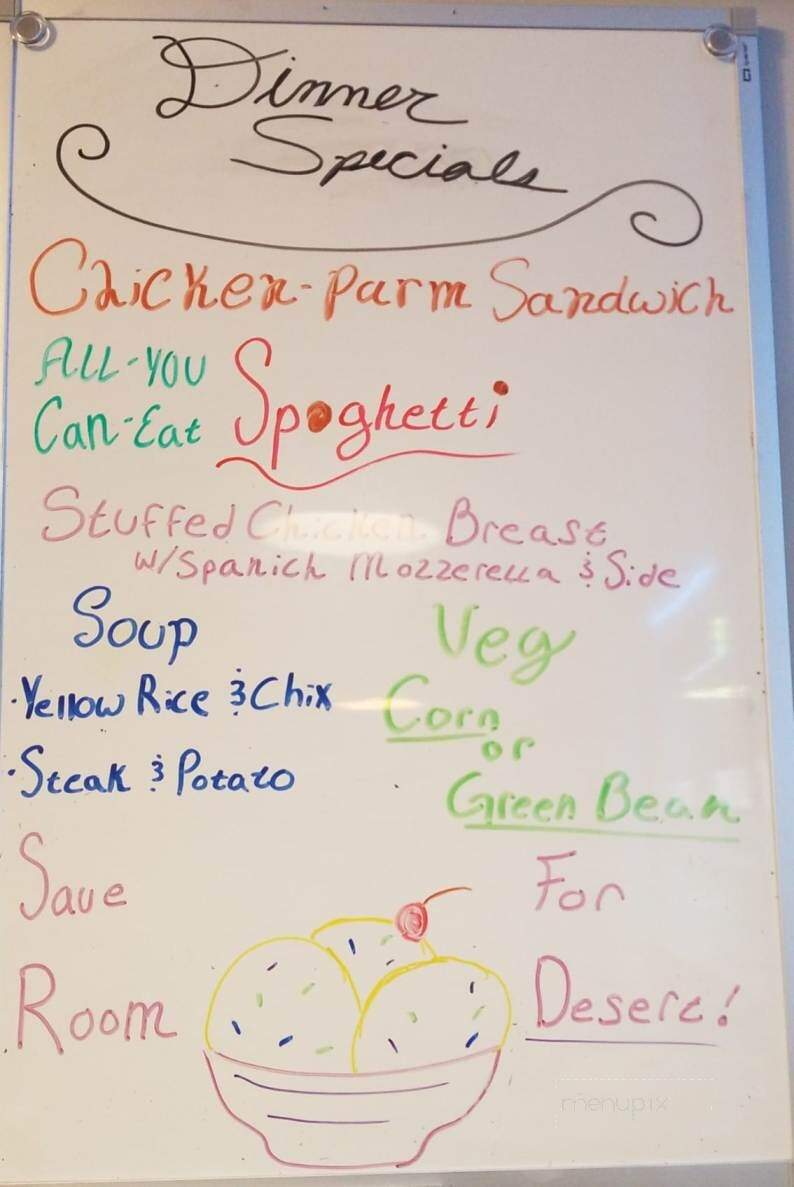 Dinner
Specials
Chicken-Parm Sandwich
ALL-YOU
Can-Eat
Spaghetti
Stuffed Chicken Breast
W/Spanich Mozzerella & Side
Soup
Veg
·Yellow Rice & Chix
Corn
or
·Steak & Potato
Green Bean
Save
For
Room
Desert!
menupix